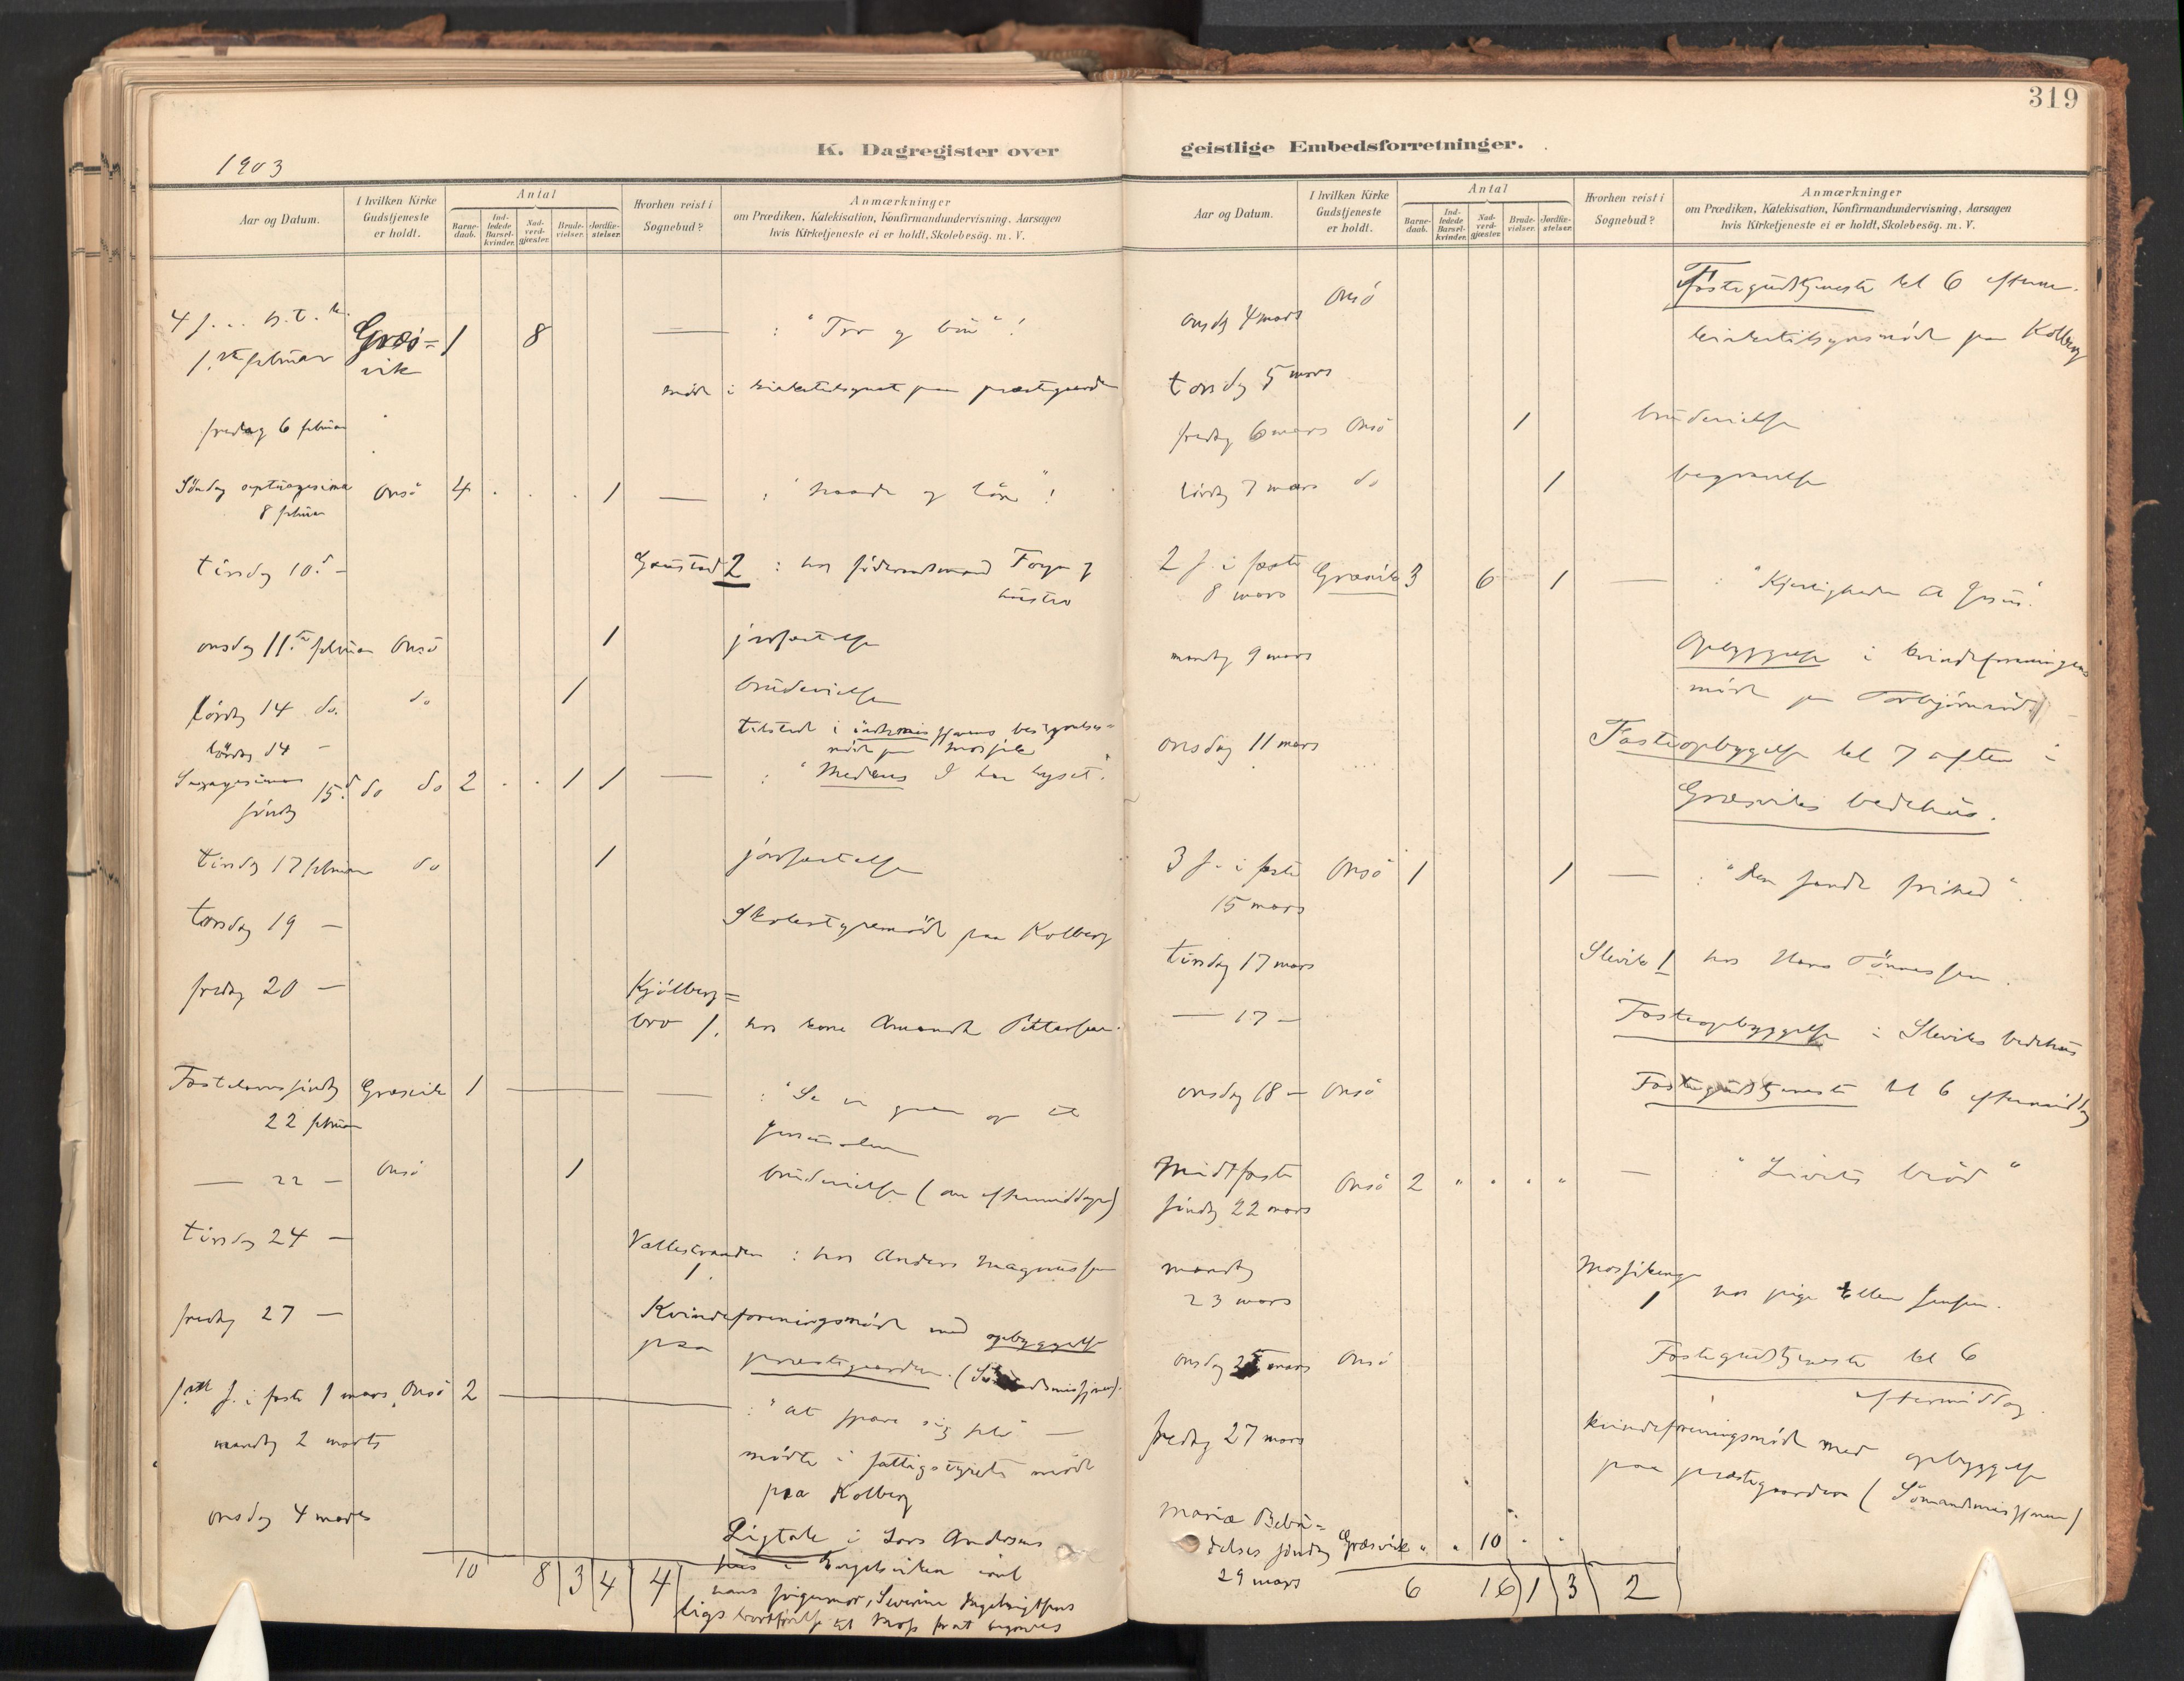 319
K. Dagregister over
geistlige Embedsforretninger.
1903
Aar og Datum.
I hvilken Kirke
Gudstjeneste
er holdt.
Antal
Barne-
daab.
Ind-
ledede
Barsel-
kvinder.
Nad-
verd-
gjæster.
Brude-
vielser.
Jordfæ-
stelser.
Hvorhen reist i
Sognebud?
Anmærkninger
om Prædiken, Katekisation, Konfirmandundervisning, Aarsagen
hvis Kirketjeneste ei er holdt, Skolebesøg. m. V.
4 s.
1.ste februar Græs=
vik 1 8 — : "Tro og bøn"!
møde i kirketilsynet paa præstegaarden
fredag 6 februar
Söndag septuagesima Onsö 4 . . . 1 — : "Naade og lön"!
8 februar
tirsdag 10.d - Gaustad 2 : hos föderaadsmand
hustro
onsdag 11.te februar Onsö 1 jordfæstelse
lördag 14 do. do 1 brudevielse
lördag 14 -
tilstede i indremissjonens
möde paa Mossik
Sexagesima
söndag 15.d do do 2 . . 1 1 — : "Medens I har lyset".
tirsdag 17 februar do 1 jordfæstelse
torsdag 19 - Skolestyremöde paa Kolberg
fredag 20 - Kjölberg=
bro 1. hos kone Amanda Pettersen.
Fastelavnssöndag Græsvik 1 — — : "Se vi gaar op til
22 februar Jerusalem
— 22 - Onsö 1 brudevielse (om eftermiddagen)
tirsdag 24 - Vallestranden : hos Anders Magnussen
1
fredag 27 - Kvindeforeningsmöde med opbyggelse
paa præstegaarden.
1.ste s. i faste 1 mars. Onsö 2 — : "at spare sig selv —
mandag 2 marts mödte i fattigstyrets möde
paa Kolberg
onsdag 4 marts Ligtale i Lars Andersens
hus i Engelsviken ved
hans svigermor, Severine Ingebrigtsens
ligs bortförelse til Moss for at begraves
10 8 3 4 4
Aar og Datum.
I hvilken Kirke
Gudstjeneste
er holdt.
Antal
Barne-
daab.
Ind-
ledede
Barsel-
kvinder.
Nad-
verd-
gjæster.
Brude-
vielser.
Jordfæ-
stelser.
Hvorhen reist i
Sognebud?
Anmærkninger
om Prædiken, Katekisation, Konfirmandundervisning, Aarsagen
hvis Kirketjeneste ei er holdt, Skolebesøg. m. V.
onsdag 4 mars Onsö Fastegudstjeneste kl 6 efterm.
torsdag 5 mars kirketilsynsmöde paa Kolberg
fredag 6 mars Onsö 1 brudevielse
lördag 7 mars do 1 begravelse
2 s. i faste Græsvik 3 6 1 — : "Kjærligheden til Jesus".
8 mars
mandag 9 mars Opbyggelse i kvindeforeningens
möde paa Torbjörnröd
onsdag 11 mars Fasteopbyggelse kl 7 aften i
Græsviks bedehus.
3 s. i faste Onsö 1 1 — : "Den sande frihed".
15 mars
tirsdag 17 mars Slevik 1 hos Hans Tönnessen.
— 17 — Fasteopbyggelse i Sleviks bedehus
onsdag 18 — Onsö Fastegudstjeneste kl 6 eftermiddag
Midtfaste
söndag 22 mars Onsö 2 " " " " — : "Livets bröd"
mandag
23 mars Mossikenge
1 hos pige Ellen Jensen.
onsdag 25 mars Onsö Fastegudstjeneste kl 6
eftermiddag
fredag 27 mars kvindeforeningsmöde med opbyggelse
paa præstegaarden (Sömandsmissjonen)
Mariæ Bebu=
delses söndag Græsvik " " 10 " "
29 mars
6 16 1 3 2